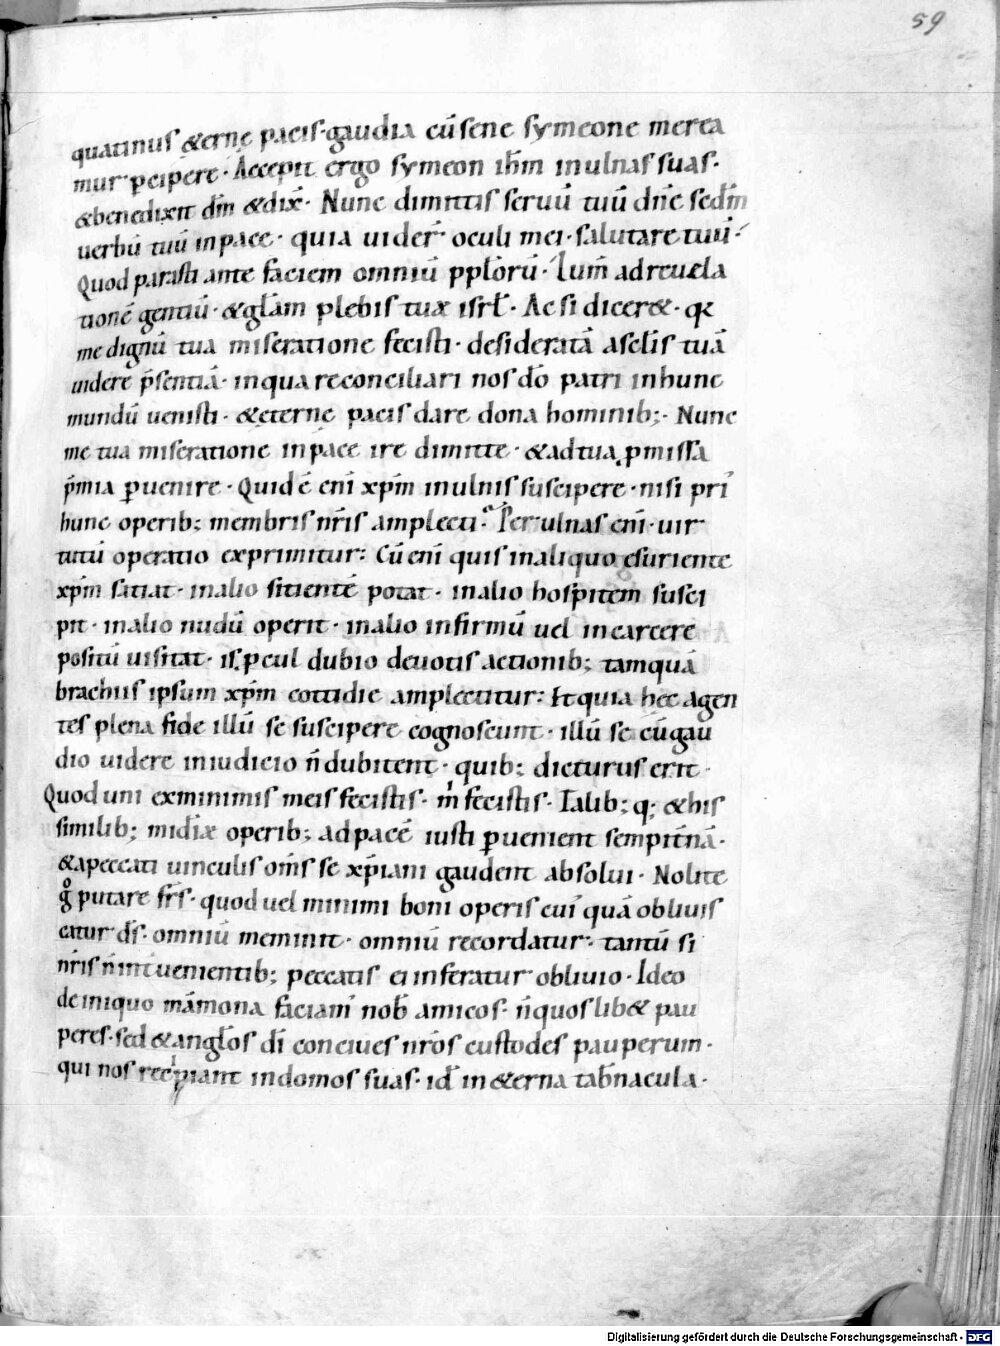 59
quatinus &ernę pacis·gaudia cū sene symeone merea
mur ꝑcipere· Accepit ergo symeon ih̄m inulnas suas·
&benedixit dm̄ &dix̄· Nunc dimittis seruū tuū dn̄e sedm̄
uerbū tuū inpace· quia uider̄ oculi mei· salutare tuū·
Quod parasti ante faciem omniū ppl̄orū· Lum̄ adreuela
tionē gentiū· &gl̄am plebis tuæ isrl̄· Ac si dicer&· qr
me dignū tua miseratione fecisti· desideratā asclis tuā
uidere p̄sentiā· inqua reconciliari nos dō patri inhunc
mundū uenisti· &eternę pacis dare dona hominib;· Nunc
me tua miseratione inpace ire dimitte· &adtua ꝓmissa
p̄mia ꝑuenire· Quid ē enī xp̄m inulnis suscipere· nisi pri
hunc operib; membris nr̄is amplecti? Per ulnas enī· uir
tutū operatio exprimitur: Cū enī quis inaliquo esuriente
xp̄m satiat· inalio sitientē potat· inalio hospitem susci
pit· inalio nudū operit· inalio infirmū uel incarcere
positū uisitat· is ꝓcul dubio deuotis actionib; tamquā
brachiis ipsum xp̄m cottidie amplectitur: Et quia hęc agen
tes plena fide illū se suscipere cognoscunt· illū se cū gau
dio uidere iniudicio n̄ dubitent· quib; dicturus erit·
Quod uni exminimis meis fecistis· m̍ fecistis· Talib; q; &his
similib; mid̄iæ operib; adpacē iusti ꝑuenient sempit̄nā·
&apeccati uinculis om̄s se xp̄iani gaudent absolui· Nolite
gͦ putare frs̄· quod uel minimi boni operis cui quā obliuis
catur ds̄· omniū meminit· omniū recordatur· tantū si
nr̄is n̄ int̄uenientib; peccatis ei inferatur obliuio· Ideo
de iniquo māmona faciam̄ nob̄ amicos· n̄ quoslib& pau
peres· sed &angl̄os dī conciues nr̄os custodes pauperum·
qui nos recipiant indomos suas· id̄ in &erna tab̄nacula·
Digitalisierung gefördert durch die Deutsche Forschungsgemeinschaft - DFG